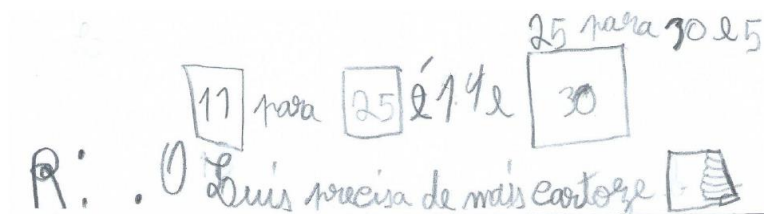 25 para 30 e 5
11 para 25 é 14 e 30
R: . O Luís precisa de mais cartoze